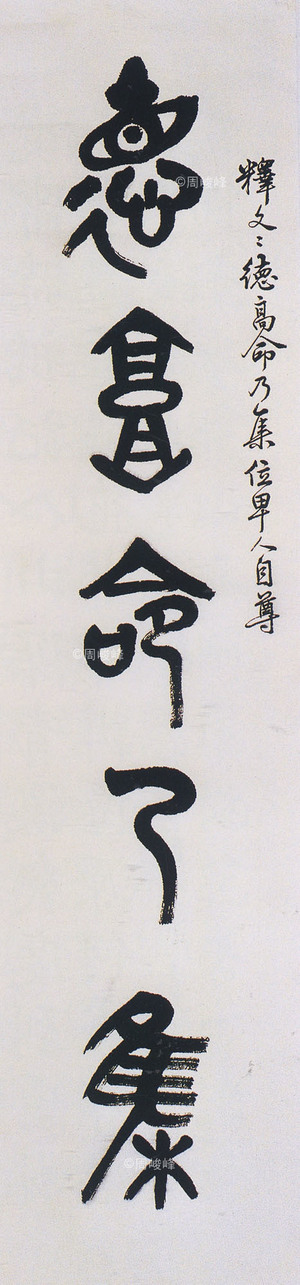 釋文：德高命乃集位卑人自尊
德高命乃集
©周峻峰
©周峻峰
©周峻峰